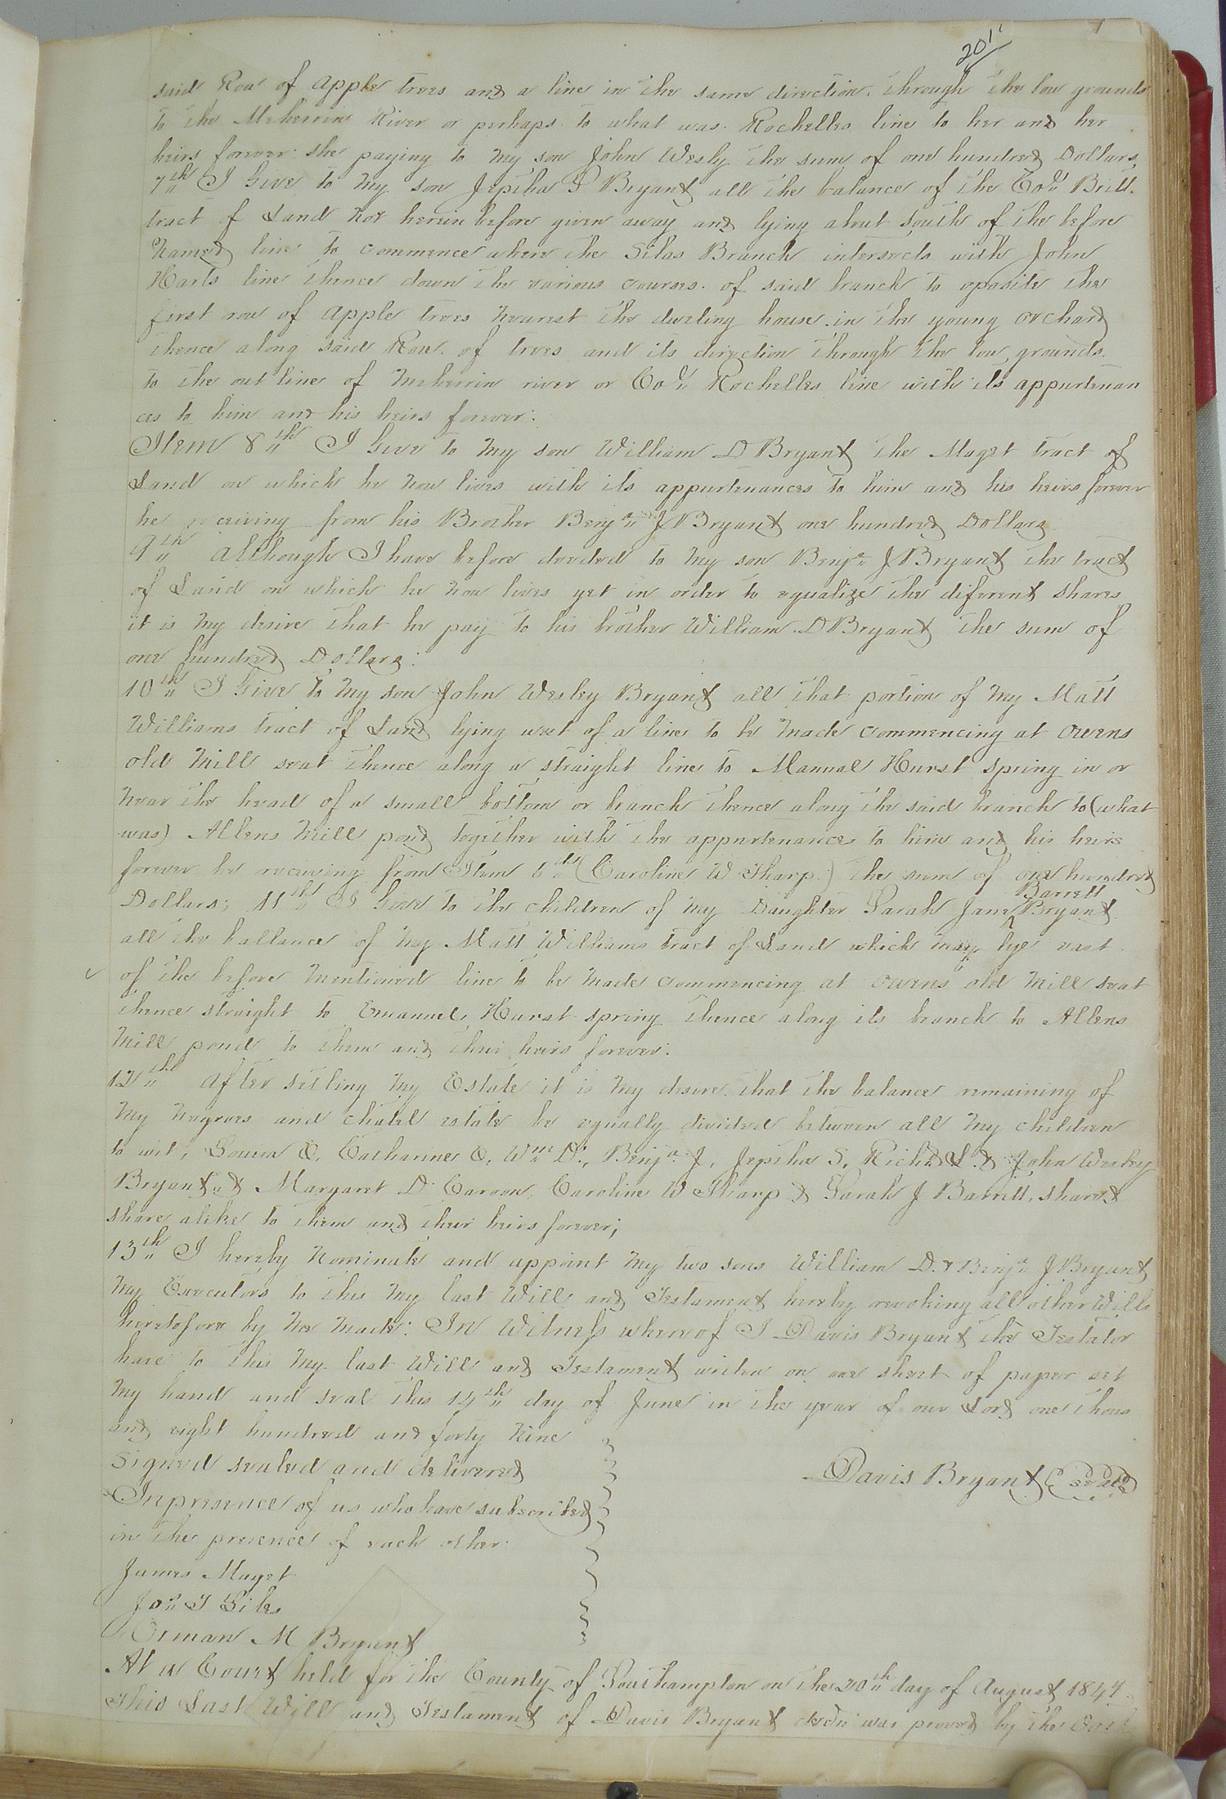 201
said Row of apple trees and a line in the same direction. through the low grounds
to the Meherrin River or perhaps to what was Rochelles line to her and her
heirs forever she paying to my son John Wesly the sum of one hundred Dollars,
7th I Give to my son Jeptha S Bryant all the balance of the Co" Britt.
tract of Land not herein before given away and lying about South of the before
Named line to commence where the Silas Branch intersects with John
Harts line thence down the various courses. of said branch to oposite the
first row of apple trees nearest the dweling house in the young orchard
thence along said Row. of trees and its direction through the low grounds.
to the out line of Meherrin river or Co" Rochelles line with its appurtenan
ces to him and his heirs forever:
Item 8th I Give to my son William D Bryant the Maget tract of
Land on which he now lives with its appurtenances to him and his heirs forever
he receiving from his Brother Benja J Bryant one hundred Dollars
9th Although I have before deeded to my son Benja J Bryant the tract
of Land on which he now lives yet in order to equalize the diferent shares
it is my desire that he pay to his brother William D Bryant the sum of
one hundred Dollars:
10th I Give to my son John Wesley Bryant all that portion of my Matt
Williams tract of Land lying west of a line to be made commencing at Owens
old Mill seat thence along a straight line to Manual Hurst spring in or
near the head of a small bottom or branch thence along the said branch to (what
was) Allens Mill pond together with the appurtenances to him and his heirs
forever he receiving from Item 6th (Caroline W Tharp) the sum of one hundred
Dollars; 11th I Give to the children of my Daughter Sarah Jane Barrett Bryant
all the ballance of my Matt Williams tract of Land which may lye east
of the before mentioned line to be made commencing at owens old Mill seat
thence straight to Emanuel Hurst spring thence along its branch to Allens
Mill pond to them and their heirs forever:
12th After setling my Estate it is my desire that the balance remaining of
my negroes and chatel estate be equally divided between all my children
to wit, Louisa Catharine Wm D., Benja J, Jeptha S, Richd L & John Wesley
Bryant & Margaret D Carson Caroline W Tharp & Sarah J Barrett, share &
share alike to them and their heirs forever;
13th I hereby Nominate and appoint my two sons William D. & Benja J Bryant
my Executors to this my last Will and Testament hereby revoking all other Wills
heretofore by me made: In Witness whereof I Davis Bryant the Testator
have to this my last Will and Testament writen on one sheet of paper set
my hand and seal this 14th day of June in the year of our Lord one thous
and eight hundred and forty nine
Signed sealed and delivered
Davis Bryant (Seal)
In presence of us who have subscribed
in the presence of each other:
James Maget
Orman M Bryant
At a Court held for the County of Southampton on the 20th day of August 1849.
This Last Will and Testament of Davis Bryant decd was proved by the